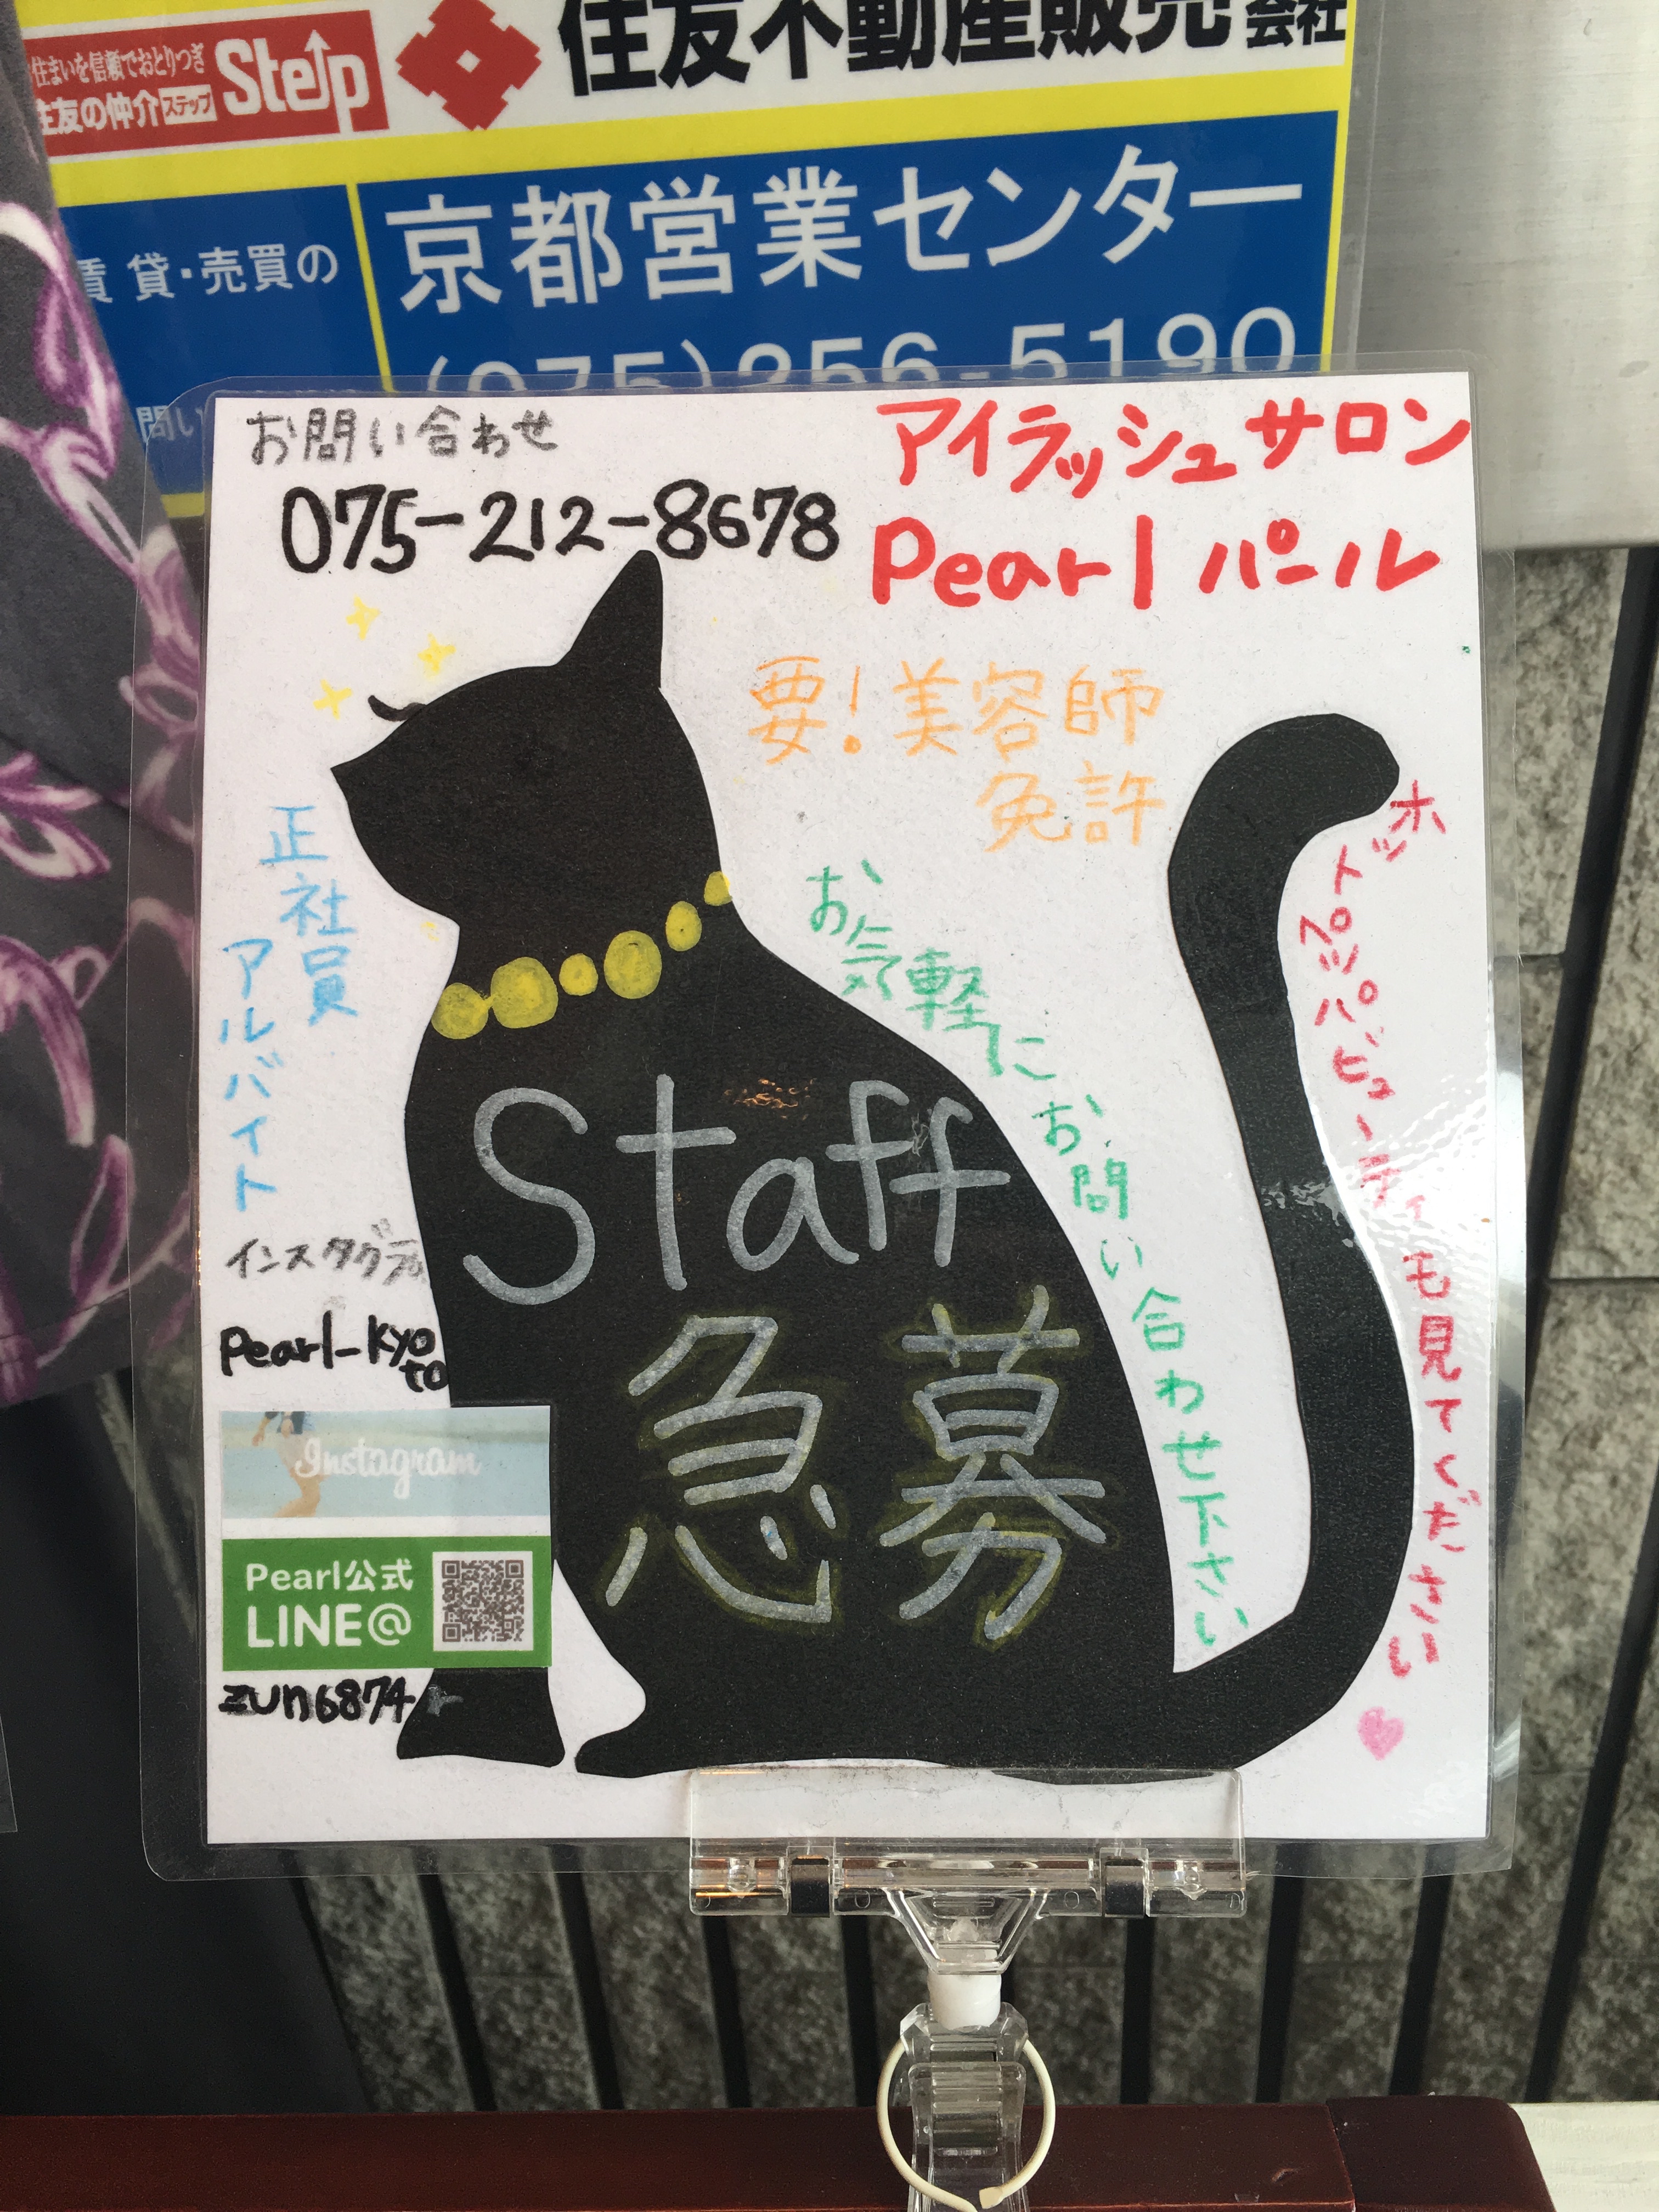 住まいを信頼でおとりつぎ
住友の仲介ステップ
Step
住友不動産販売
会社
賃貸・売買の
京都営業センター
(075)256-5190
問い
お問い合わせ
075-212-8678
アイラッシュサロン
Pearl パール
要!美容師
免許
正社員
アルバイト
お気軽にお問い合わせ下さい
ホットペッパービューティも見てください
Staff
急募
インスタグラム
Pearl-kyo
to
Instagram
Pearl公式
LINE@
zun6874